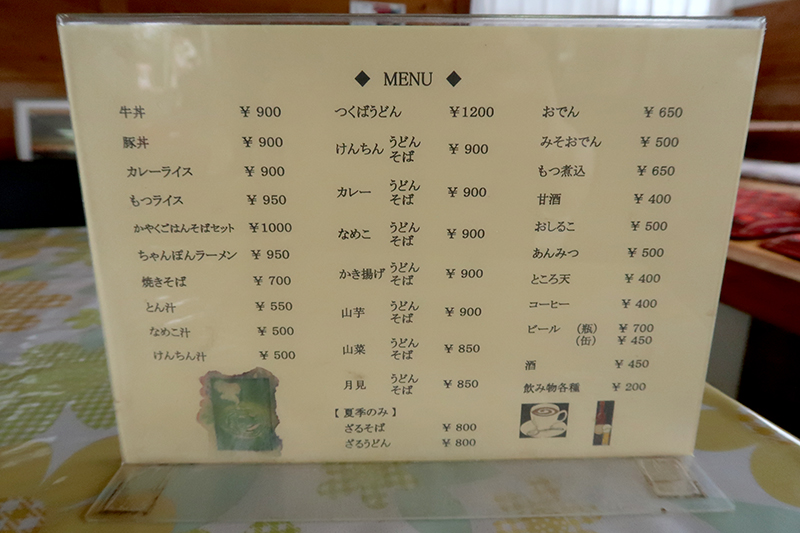 ◆ MENU ◆
牛丼 ¥ 900
豚丼 ¥ 900
カレーライス ¥ 900
もつライス ¥ 950
かやくごはんそばセット ¥1000
ちゃんぽんラーメン ¥ 950
焼きそば ¥ 700
とん汁 ¥ 550
なめこ汁 ¥ 500
けんちん汁 ¥ 500
つくばうどん ¥1200
けんちん うどん そば ¥ 900
カレー うどん そば ¥ 900
なめこ うどん そば ¥ 900
かき揚げ うどん そば ¥ 900
山芋 うどん そば ¥ 900
山菜 うどん そば ¥ 850
月見 うどん そば ¥ 850
【 夏季のみ 】
ざるそば ¥ 800
ざるうどん ¥ 800
おでん ¥ 650
みそおでん ¥ 500
もつ煮込 ¥ 650
甘酒 ¥ 400
おしるこ ¥ 500
あんみつ ¥ 500
ところ天 ¥ 400
コーヒー ¥ 400
ビール (瓶) ¥ 700
(缶) ¥ 450
酒 ¥ 450
飲み物各種 ¥ 200